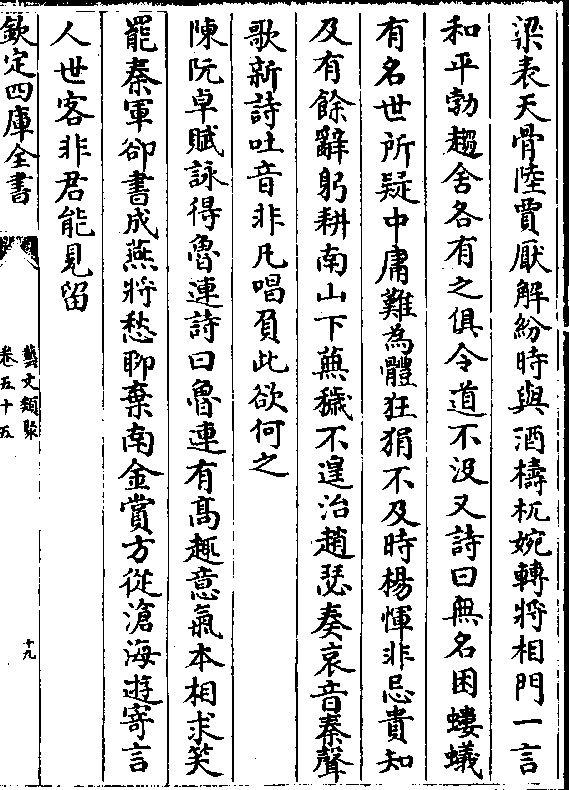 梁表天骨陸賈厭解紛時與酒檮杌婉轉將相門一言
和平勃趨舍各有之俱令道不没又詩曰無名困螻蟻
有名世所疑中庸難為體狂狷不及時楊惲非忌貴知
及有餘辭躬耕南山下蕪穢不遑治趙瑟奏哀音秦聲
歌新詩吐音非凡唱負此欲何之
陳阮卓賦詠得魯連詩曰魯連有髙趣意氣本相求笑
罷秦軍卻書成燕將愁聊棄南金賞方從滄海遊寄言
人世客非君能見留
欽定四庫全書
藝文類聚
卷五十五
十九